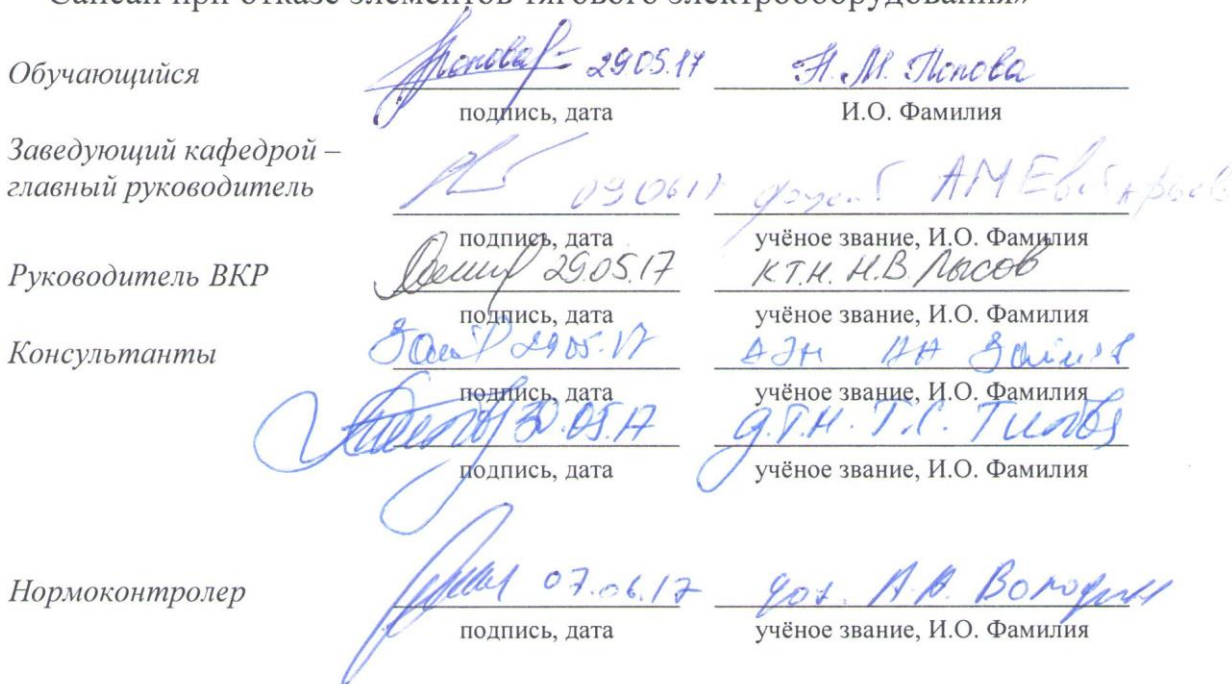 Сапсан при отказе элементов тягового электрооборудования»
Обучающийся 29.05.17 Н. М. Попова
подпись, дата И.О. Фамилия
Заведующий кафедрой –
главный руководитель 09.06.17 доцент А М Евстафьев
подпись, дата учёное звание, И.О. Фамилия
Руководитель ВКР 29.05.17 к.т.н. Н.В. Лысов
подпись, дата учёное звание, И.О. Фамилия
Консультанты 29.05.17
подпись, дата учёное звание, И.О. Фамилия
30.05.17 д.т.н. Т.С. Титова
подпись, дата учёное звание, И.О. Фамилия
Нормоконтролер 07.06.17
подпись, дата учёное звание, И.О. Фамилия